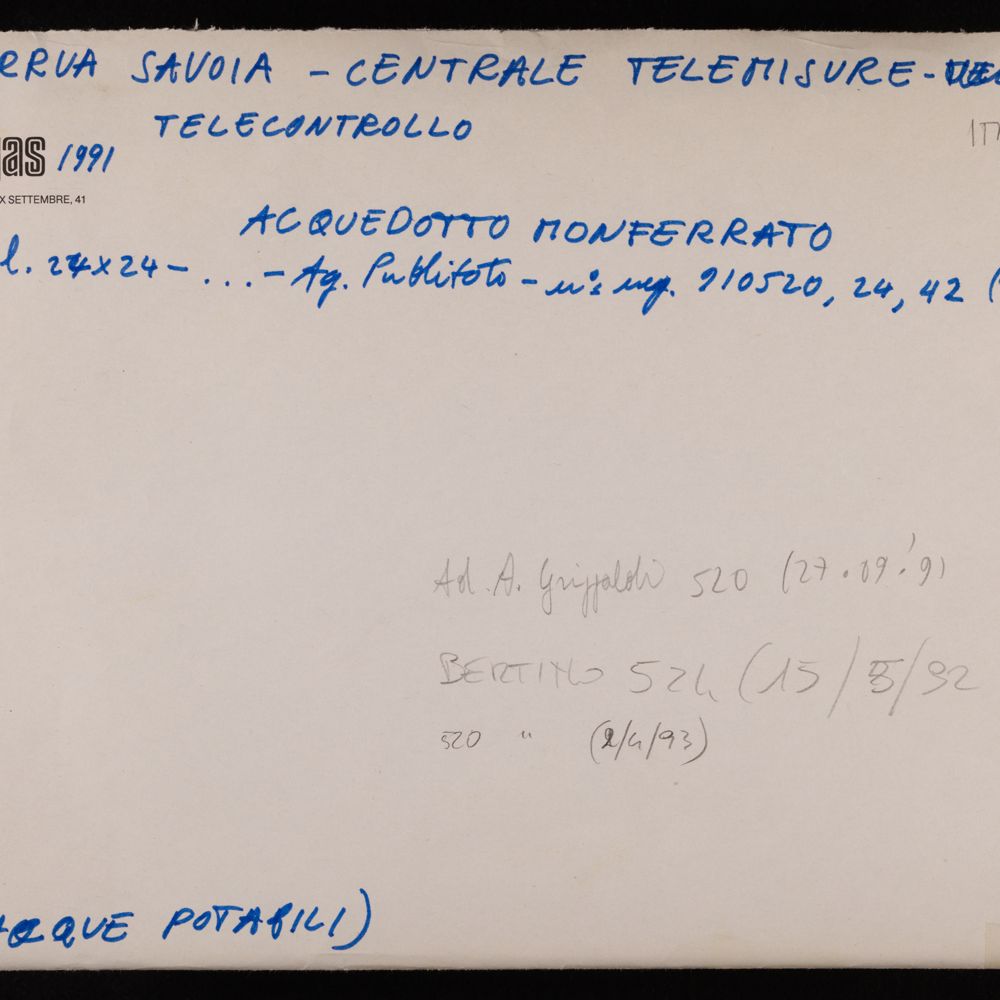 RRUA SAVOIA - CENTRALE TELEMISURE -
TELECONTROLLO
gas 1991
X SETTEMBRE, 41
ACQUEDOTTO MONFERRATO
l. 24x24 - ... - Ag. Publifoto - n°s neg. 910520, 24, 42 (
Ad. A. Griffaldi 520 (27.09.'91
BERTINO 524 (15/5/92
520 " (2/4/93)
ACQUE POTABILI)